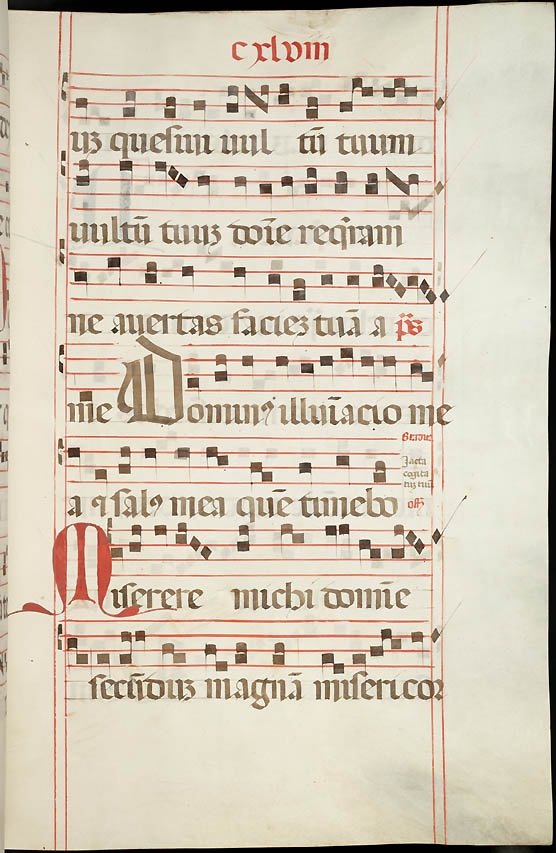 cxlviii
uz quesiui uul tũ tuum
uultũ tuuz dom̃e req̃ram
ne auertas faciez tuã a p̃s
me Dominꝰ illuiãcio me
a ⁊ salꝰ mea quẽ timebo
Gradũ
Jacta
cogita
tuz tuũ
off̃
Miserere michi domĩe
secũduz magnã misericor